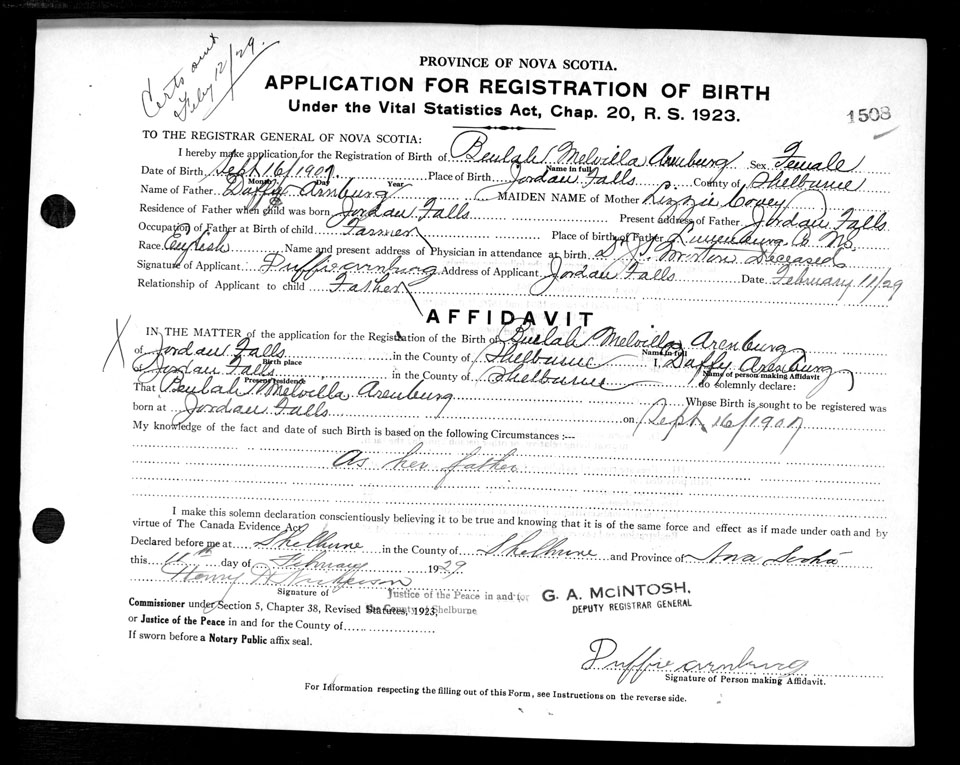 Certs out
Feby 12/29.
PROVINCE OF NOVA SCOTIA.
APPLICATION FOR REGISTRATION OF BIRTH
Under the Vital Statistics Act, Chap. 20, R. S. 1923.
1508
TO THE REGISTRAR GENERAL OF NOVA SCOTIA:
I hereby make application for the Registration of Birth of Beulah Melvilla Arenburg Sex Female
Name in full
Date of Birth Sept 16/1907. Place of Birth Jordan Falls County of Shelburne
Month Day Year
Name of Father Daffy Arnburg MAIDEN NAME of Mother Lizzie Covey
Residence of Father when child was born Jordan Falls Present address of Father Jordan Falls
Occupation of Father at Birth of child Farmer Place of birth of Father Lunenburg Co. N.S.
Race English Name and present address of Physician in attendance at birth Deceased
Signature of Applicant Duffie arnburg Address of Applicant Jordan Falls Date February 11/29
Relationship of Applicant to child Father
AFFIDAVIT
X
IN THE MATTER of the application for the Registration of the Birth of Beulah Melvilla Arenburg
Name in full
of Jordan Falls in the County of Shelburne I, Daffy Arenburg
Birth place Name of person making Affidavit
of Jordan Falls in the County of Shelburne do solemnly declare:
Present residence
That Beulah Melvilla Arenburg Whose Birth is sought to be registered was
born at Jordan Falls on Sept. 16/1907
My knowledge of the fact and date of such Birth is based on the following Circumstances :---
As her father
I make this solemn declaration conscientiously believing it to be true and knowing that it is of the same force and effect as if made under oath and by
virtue of The Canada Evidence Act.
Declared before me at Shelburne in the County of Shelburne and Province of Nova Scotia
this 11th day of February 1929
Henry
Signature of Justice of the Peace in and for
G. A. McINTOSH,
DEPUTY REGISTRAR GENERAL
Commissioner under Section 5, Chapter 38, Revised Statutes, 1923, the County of Shelburne
or Justice of the Peace in and for the County of
If sworn before a Notary Public affix seal.
Duffie arnburg
Signature of Person making Affidavit.
For Information respecting the filling out of this Form, see Instructions on the reverse side.